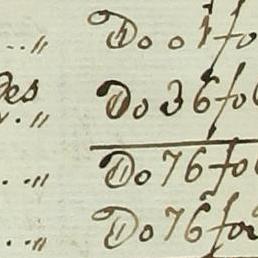 .. „ Do 01 fo
des
. „ Do 36 fo
. . „ Do 76 fo
. . „ Do 76 for